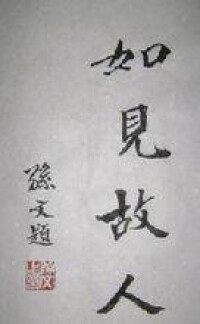 如見故人
孫文題